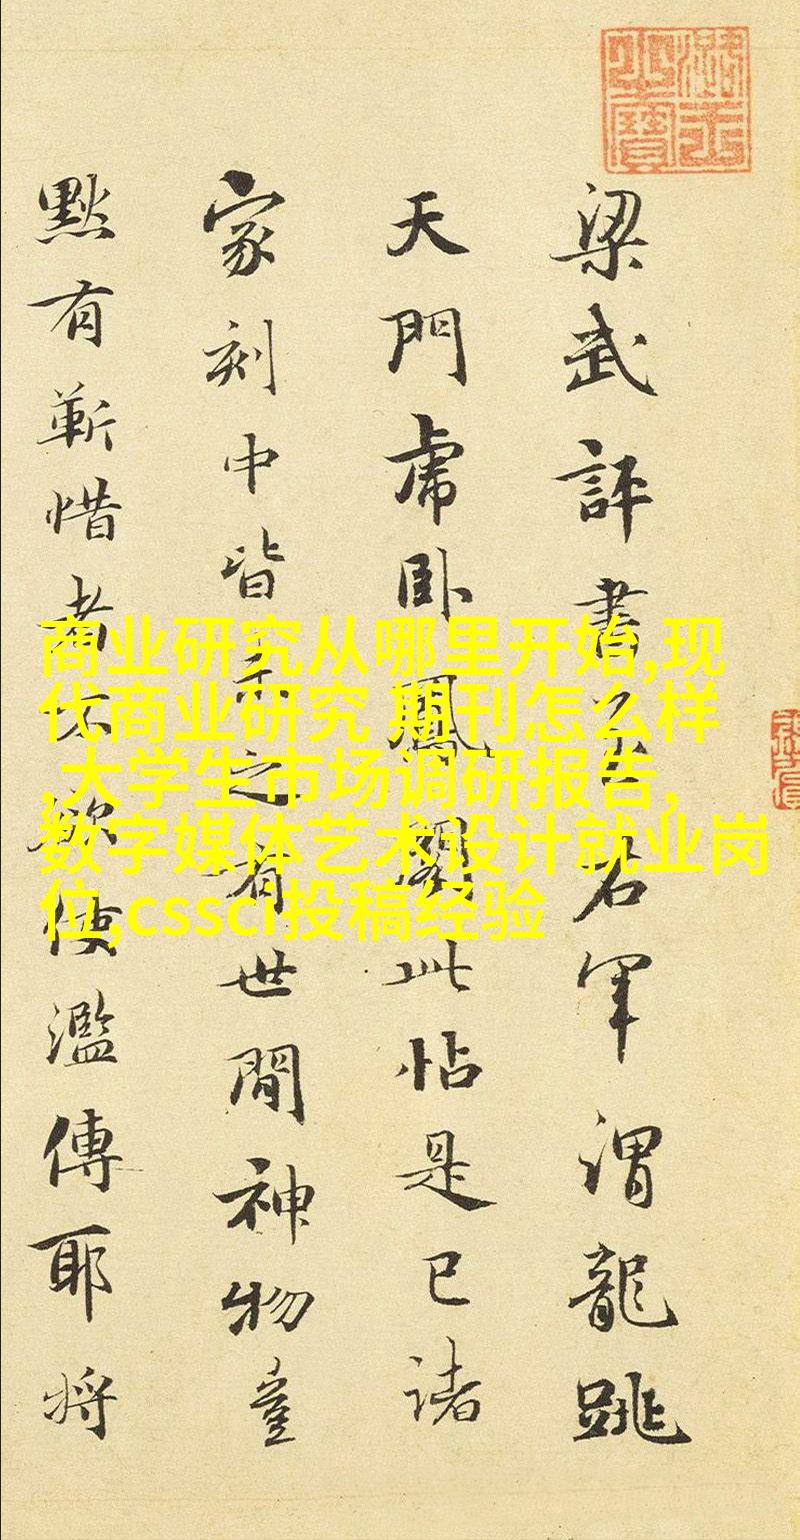 梁武評書至右軍謂龍跳
天門虎卧鳳閣此帖是已諸
家刻中皆無之有世間神物
默有靳惜者不欲使濫傳耶將
商业研究从哪里开始,现
代商业研究 期刊怎么样
,大学生市场调研报告,
数字媒体艺术设计就业岗
位,cssci投稿经验